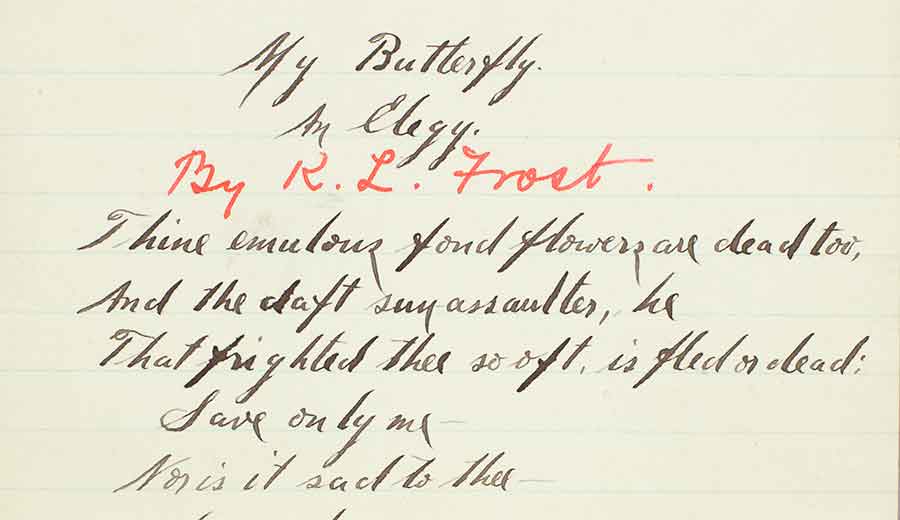 My Butterfly.
An Elegy.
By R. L. Frost.
Thine emulous fond flowers are dead too,
And the daft sun assaulter, he
That frighted thee so oft, is fled or dead:
Save only me—
Nor is it sad to thee—